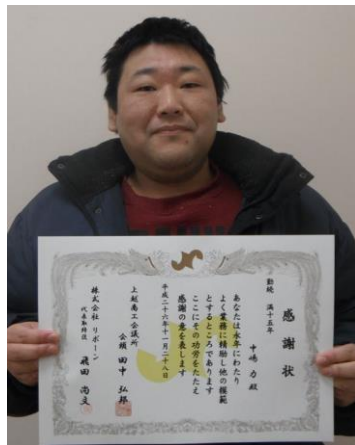 感謝状
勤続 満十五年
中嶋 力 殿
あなたは永年にわたり
よく業務に精励し他の模範
とするところであります
ここにその功労をたたえ
感謝の意を表します
平成二十六年十一月二十八日
上越商工会議所
会頭 田中 弘邦
株式会社 リボーン
代表取締役 飛田 尚文